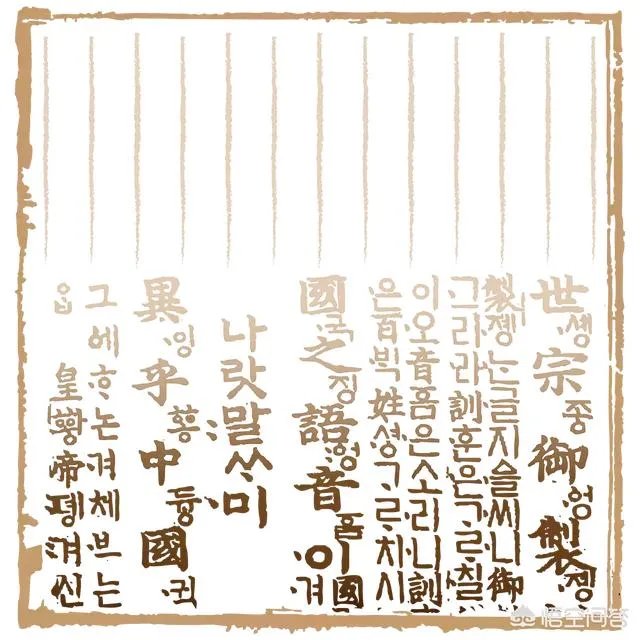 世솅宗종御엉製졩
製졩는글지슬씨니御
그리라訓훈은ᄀᆞᄅᆞ칠
이오音흠은소리니訓
은百ᄇᆡᆨ姓셩ᄀᆞᄅᆞ치시
國국之징語헝音흠이國겨
나랏말ᄊᆞ미
異잉乎中듕國귁
그에ᄒᆞ논겨체ᄡᅳ는
皇帝뎽겨신
悟空问答